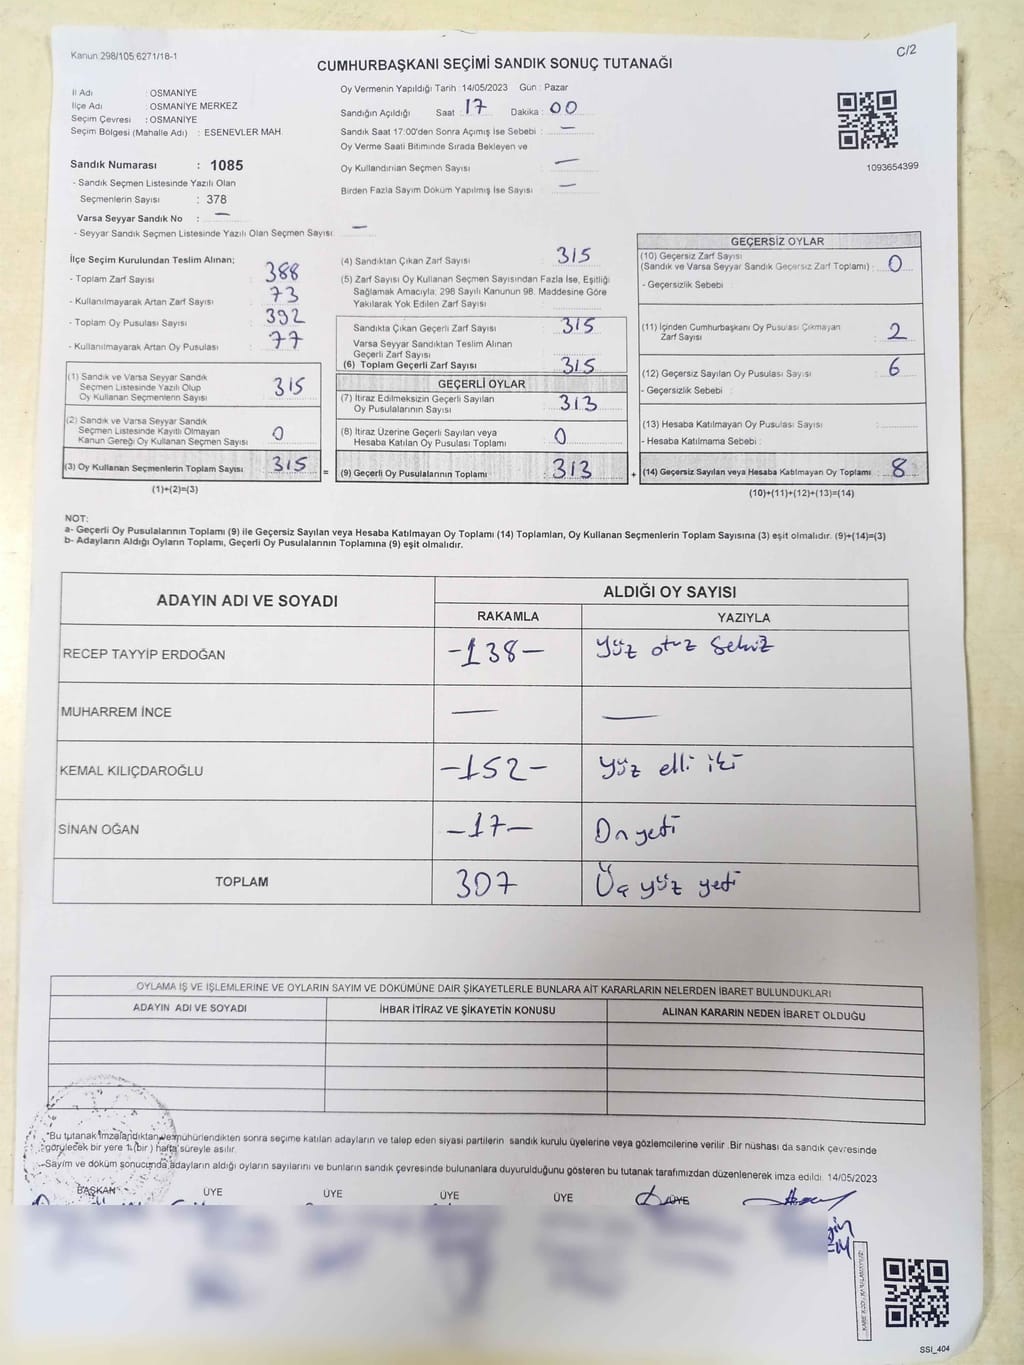 Kanun 298/105 6271/18-1
C/2
CUMHURBAŞKANI SEÇİMİ SANDIK SONUÇ TUTANAĞI
İl Adı : OSMANİYE
İlçe Adı : OSMANİYE MERKEZ
Seçim Çevresi : OSMANİYE
Seçim Bölgesi (Mahalle Adı) : ESENEVLER MAH.
Sandık Numarası : 1085
- Sandık Seçmen Listesinde Yazılı Olan
Seçmenlerin Sayısı : 378
Varsa Seyyar Sandık No : —
- Seyyar Sandık Seçmen Listesinde Yazılı Olan Seçmen Sayısı : —
Oy Vermenin Yapıldığı Tarih : 14/05/2023 Gün : Pazar
Sandığın Açıldığı Saat : 17 Dakika : 00
Sandık Saat 17:00'den Sonra Açımış İse Sebebi : —
Oy Verme Saati Bitiminde Sırada Bekleyen ve
Oy Kullandırılan Seçmen Sayısı : —
Birden Fazla Sayım Döküm Yapılmış İse Sayısı : —
1093654399
İlçe Seçim Kurulundan Teslim Alınan;
- Toplam Zarf Sayısı : 388
- Kullanılmayarak Artan Zarf Sayısı : 73
- Toplam Oy Pusulası Sayısı : 392
- Kullanılmayarak Artan Oy Pusulası : 77
(1) Sandık ve Varsa Seyyar Sandık
Seçmen Listesinde Yazılı Olup
Oy Kullanan Seçmenlerin Sayısı : 315
(2) Sandık ve Varsa Seyyar Sandık
Seçmen Listesinde Kayıtlı Olmayan
Kanun Gereği Oy Kullanan Seçmen Sayısı : 0
(3) Oy Kullanan Seçmenlerin Toplam Sayısı : 315
(1)+(2)=(3)
(4) Sandıktan Çıkan Zarf Sayısı : 315
(5) Zarf Sayısı Oy Kullanan Seçmen Sayısından Fazla İse, Eşitliği
Sağlamak Amacıyla, 298 Sayılı Kanunun 98. Maddesine Göre
Yakılarak Yok Edilen Zarf Sayısı :
Sandıkta Çıkan Geçerli Zarf Sayısı : 315
Varsa Seyyar Sandıktan Teslim Alınan
Geçerli Zarf Sayısı :
(6) Toplam Geçerli Zarf Sayısı : 315
GEÇERLİ OYLAR
(7) İtiraz Edilmeksizin Geçerli Sayılan
Oy Pusulalarının Sayısı : 313
(8) İtiraz Üzerine Geçerli Sayılan veya
Hesaba Katılan Oy Pusulası Toplamı : 0
= (9) Geçerli Oy Pusulalarının Toplamı : 313
GEÇERSİZ OYLAR
(10) Geçersiz Zarf Sayısı
(Sandık ve Varsa Seyyar Sandık Geçersiz Zarf Toplamı) : 0
- Geçersizlik Sebebi :
(11) İçinden Cumhurbaşkanı Oy Pusulası Çıkmayan
Zarf Sayısı : 2
(12) Geçersiz Sayılan Oy Pusulası Sayısı : 6
- Geçersizlik Sebebi :
(13) Hesaba Katılmayan Oy Pusulası Sayısı :
- Hesaba Katılmama Sebebi :
+ (14) Geçersiz Sayılan veya Hesaba Katılmayan Oy Toplamı : 8
(10)+(11)+(12)+(13)=(14)
NOT:
a- Geçerli Oy Pusulalarının Toplamı (9) ile Geçersiz Sayılan veya Hesaba Katılmayan Oy Toplamı (14) Toplamları, Oy Kullanan Seçmenlerin Toplam Sayısına (3) eşit olmalıdır. (9)+(14)=(3)
b- Adayların Aldığı Oyların Toplamı, Geçerli Oy Pusulalarının Toplamına (9) eşit olmalıdır.
ADAYIN ADI VE SOYADI ALDIĞI OY SAYISI
RAKAMLA YAZIYLA
RECEP TAYYİP ERDOĞAN -138- Yüz otuz sekiz
MUHARREM İNCE — —
KEMAL KILIÇDAROĞLU -152- Yüz elli iki
SİNAN OĞAN -17- On yedi
TOPLAM 307 Üç yüz yedi
OYLAMA İŞ VE İŞLEMLERİNE VE OYLARIN SAYIM VE DÖKÜMÜNE DAİR ŞİKAYETLERLE BUNLARA AİT KARARLARIN NELERDEN İBARET BULUNDUKLARI
ADAYIN ADI VE SOYADI İHBAR İTİRAZ VE ŞİKAYETİN KONUSU ALINAN KARARIN NEDEN İBARET OLDUĞU
"Bu tutanak imzalandıktan ve mühürlendikten sonra seçime katılan adayların ve talep eden siyasi partilerin sandık kurulu üyelerine veya gözlemcilerine verilir. Bir nüshası da sandık çevresinde
görülecek bir yere 1 (bir) hafta süreyle asılır.
Sayım ve döküm sonucunda adayların aldığı oyların sayılarını ve bunların sandık çevresinde bulunanlara duyurulduğunu gösteren bu tutanak tarafımızdan düzenlenerek imza edildi. 14/05/2023
BAŞKAN ÜYE ÜYE ÜYE ÜYE ÜYE
SSI_404